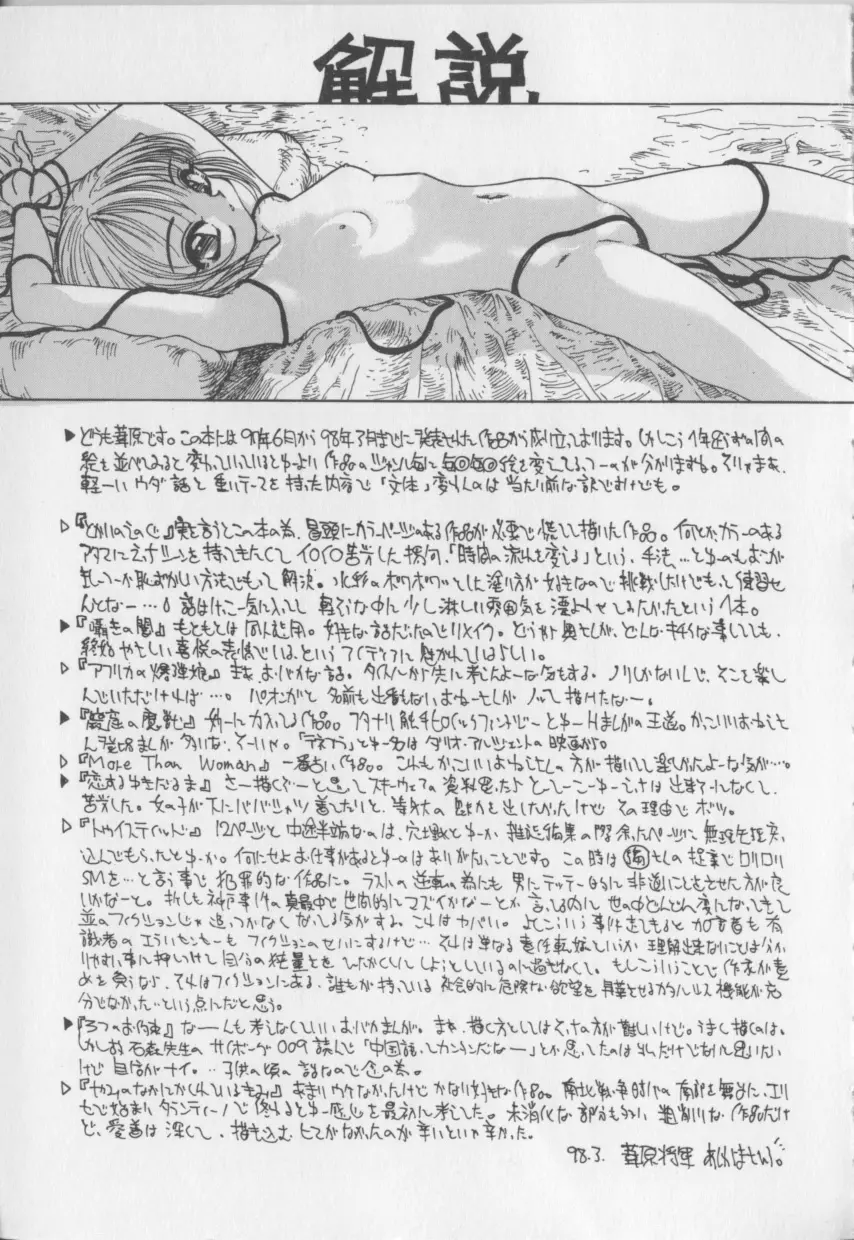 解説
▶どうも葦原です。この本は97年6月から98年3月までに発表された作品から成り立っております。しかしこう1年近くの間の
絵を並べてみると変わっていっているとゆーより作品のジャンル毎に毎回毎回絵を変えてるってーのが分かりますね。そりゃまあ、
軽ーいウダ話と重いテーマを持った内容で「文体」変わんのは当たり前な訳ですけども。
実を言うとこの本の為、冒頭にカラーページのある作品が必要で慌てて描いた作品。何とか、カラーのある
アタマにエッチシーンを持ってきたくてイロイロ苦労した揚句、「時間の流れを変える」という、手法…とゆーのもおこが
ましいってーか恥ずかしい方法でもって解決。水彩のポワポワッとした塗り方が好きなので挑戦したけどもっと練習せ
んとなー…。話はけっこー気に入ってて軽そうな中に少し淋しい雰囲気を漂よわせてみたかったという1本。
▶『囁きの闇』もともとは同人誌用。好きな話だったのでリメイク。どうやら奥さんが、どんなHな事してても、
終始やさしい喜悦の表情でいる、というアイディアに
▷『アフリカの爆弾娘』まあ、おバカな話。タイトルから先に考えたよーな気もする。ノリしかないんで、そこを楽し
んでいただければ…。パオンがと名前も出番もないおねーさんがノッて描けたなー。
フタナリ触手ヒロイックファンタジーとゆーHまんがの王道。かっこいいおねえさ
ん登場まんが多いな、そーいや。「テネブラ」とゆー名はダリオ・アルジェントの映画から。
▷『More Than Woman』一番古い作品。これもかっこいいおねえさんの方が描いてて楽しかったよーな気が…。
▶『恋するゆきだるま』さー描くぞーと思ってスキーウェアの資料
苦労した。女の子が下にババシャツ着てたりと、等身大の魅力を出したかったけどその理由でボツ。
▷『トゥイステイルド』12ページと中途半端なのは、穴埋戦とゆーか雑誌編集の際余ったページに無理矢理突っ
込んでもらったとゆーか。何にせよお仕事があるとゆーのはありがたいことです。この時は編さんの提案でロリロリ
SMを…と言う事で犯罪的な作品に。ラストの逆転の為にも男にテッテー的に非道いことをさせた方が良
いかなーと。折しも神戸事件の真最中で世間的にマズイかなーとか言ってる内に世の中どんどん変になってきて
並のフィクションじゃ追いつかなくなってる気がする。これはヤバい。よくこういう事件がおきてると加害者も有
識者のエラいセンセーもフィクションのせいにするけど…それは単なる責任転嫁というか理解出来ないことは分か
りやすい事に押しつけて自分の
めを負うなら、それはフィクションにある、誰もが持っている社会的に危険な欲望を昇華させるカタルシス機能が充
分でなかった…という点にだと思う。
▶『3つのお約束』なーんも考えなくていいおバカまんが。まあ、描く方としてはその方が難しいけど。うまく描くのは。
しかしお石森先生のサイボーグ009読んで「中国語ってカンタンだなー」とか思ってたのはオレだけでないと思いたい
けど自信がナイ。…子供の頃の話なので念の為。
あまりウケなかったけどかなり好きな作品。南北戦争時代の南部を舞台に、エリ
タランティーノで終るとゆー感じを最初に考えてた。未消化な部分も多い粗削りな作品だけ
ど、愛着は深くて、描き込むヒマがなかったのが辛いといや辛かった。
98.3. 葦原将軍 あしはらしょうぐん。